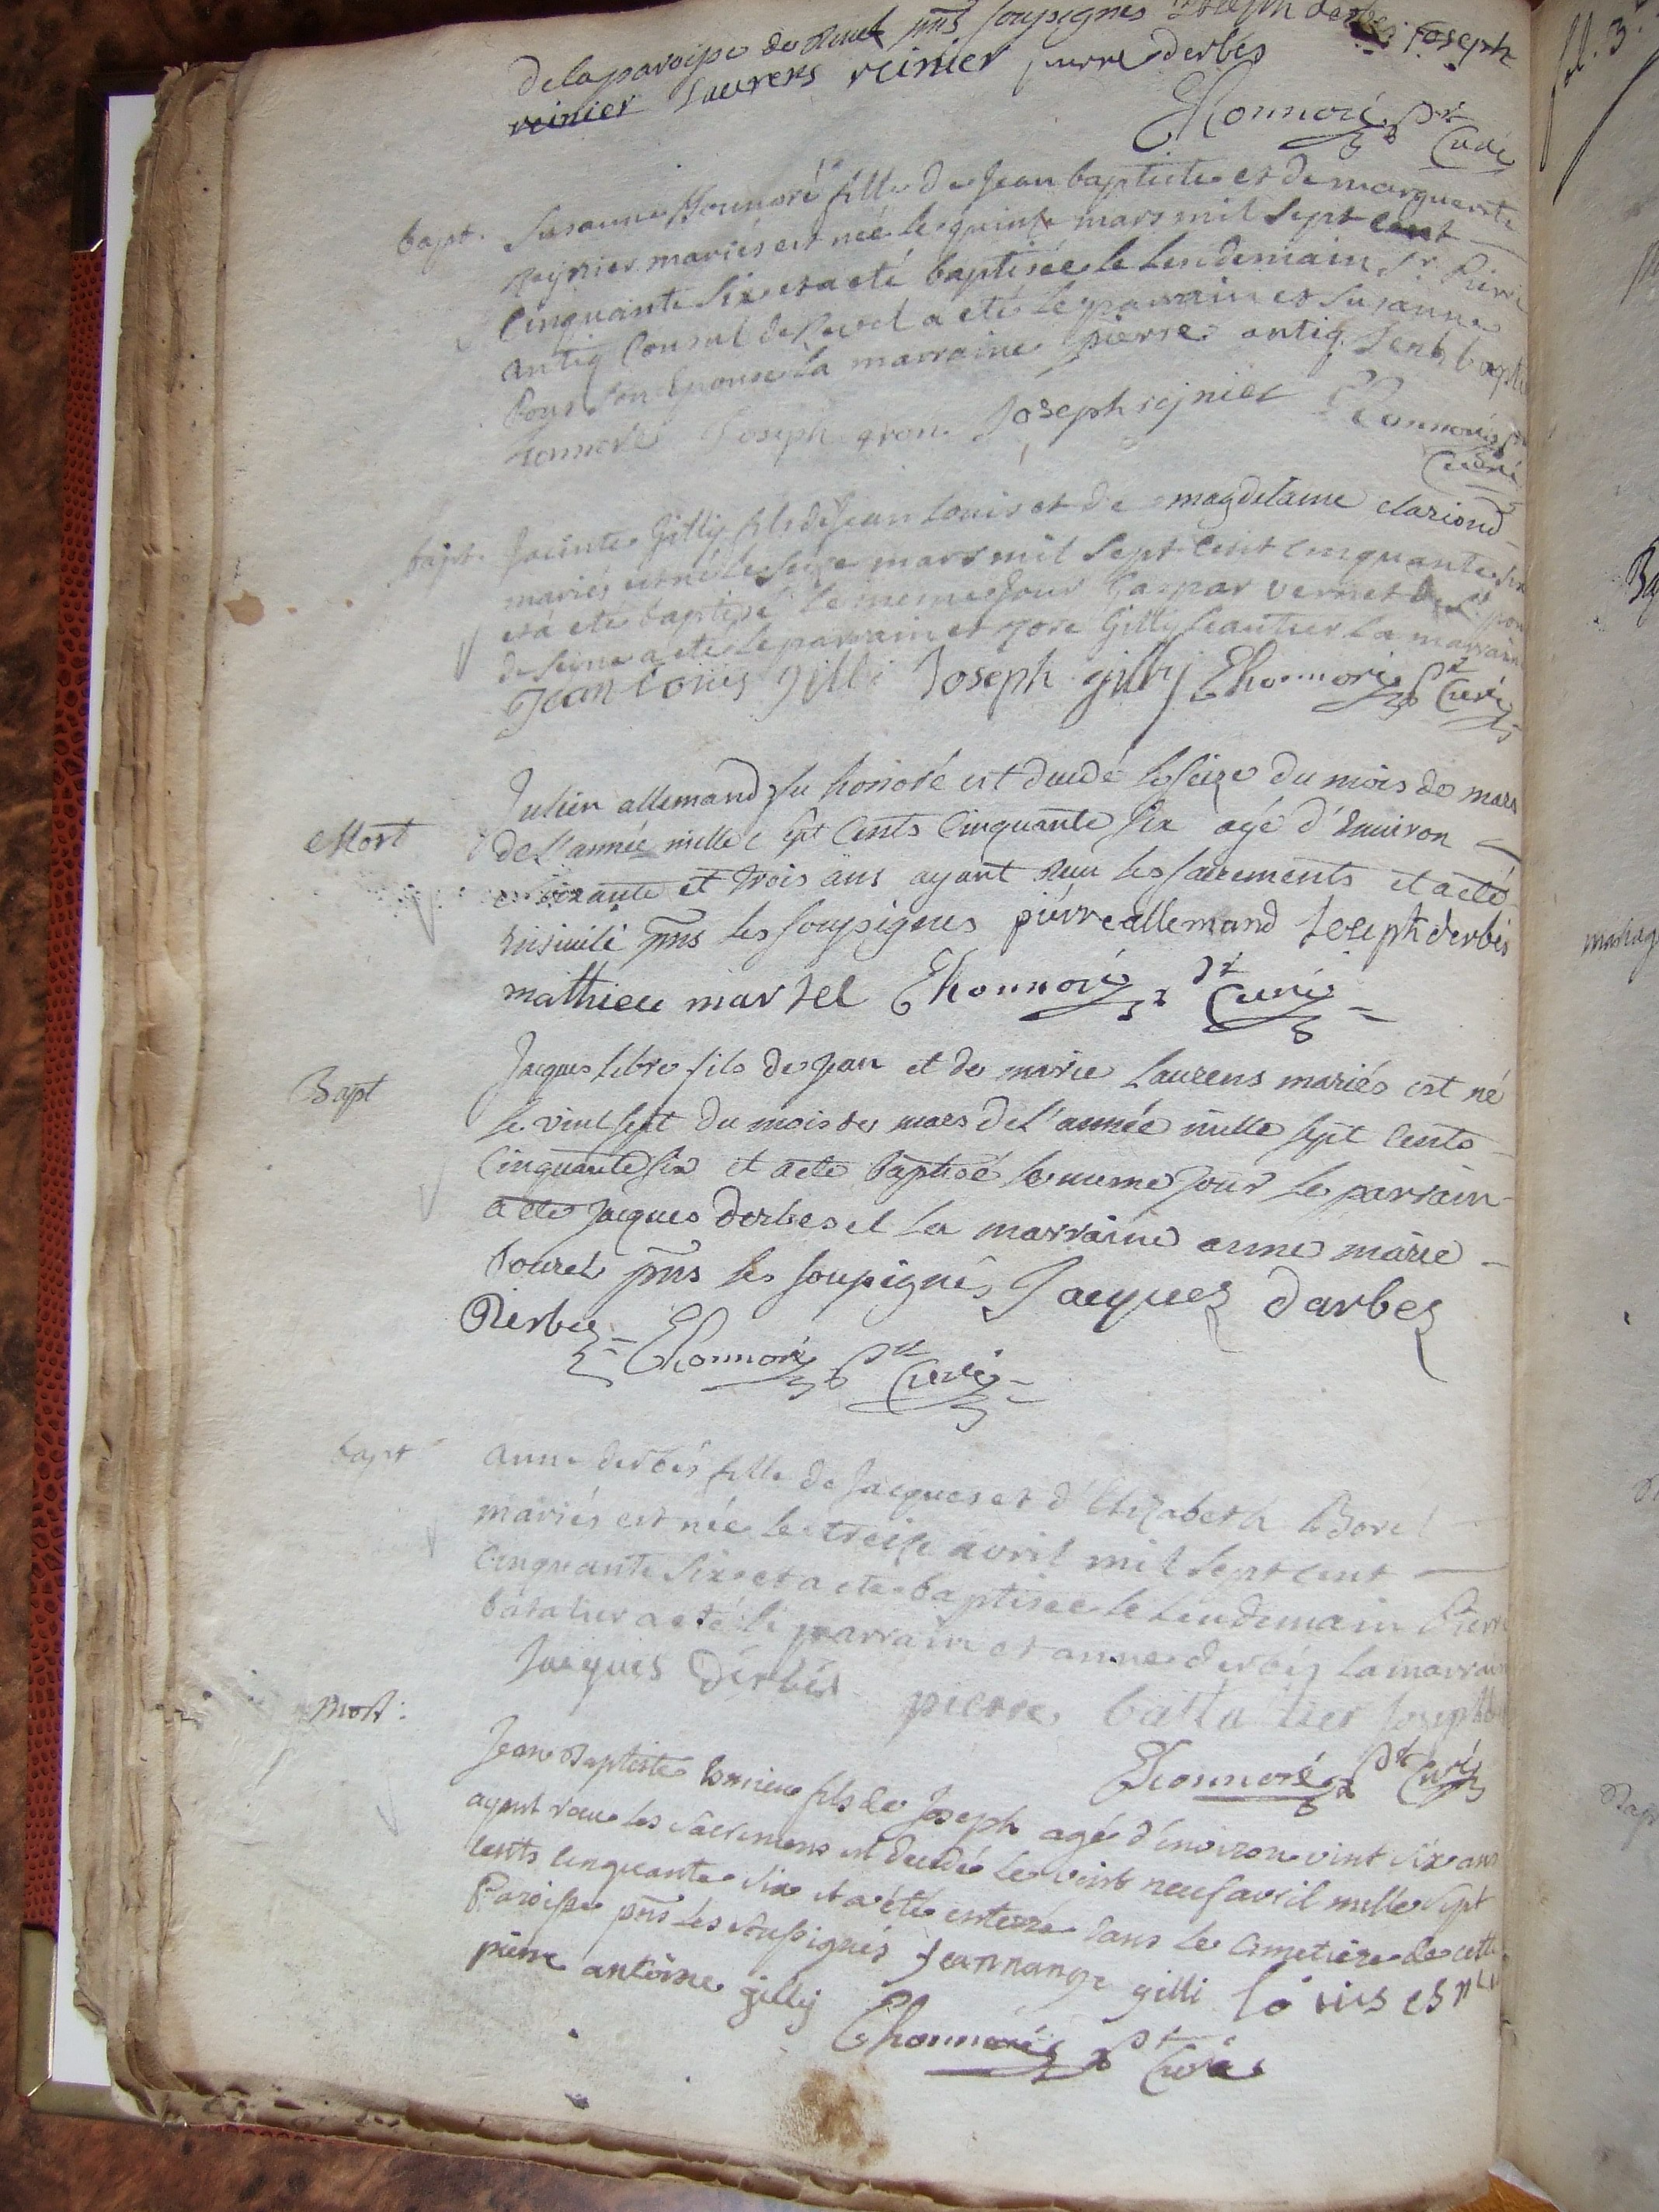 de la paroisse de Revel pnts soussignes Joseph derbes Joseph
reinier Laurens reinier pierre derbés
Ehonnoré ptre
Curé
bapt. Susanne Honnoré fille de Jean baptiste et de marguerite
Reynier mariés est née le quinse mars mil sept cent
Cinquante Six et a eté baptisée le lendemain Sr Pierre
antiq Consul de Revel a eté le parrain et Susanne
Pons son Epouse la marraine pierre antiq Jean baptiste
honnoré Joseph aron Joseph rejnier Ehonnoré ptre
Curé
bapt. Jacinte Gilly fils de Jean Louis et de magdelaine clariond
mariés est né le seize mars mil sept cent cinquante six
et a eté baptisé le meme jour Gaspar vernet de St pons
de Seine a eté le parrain et Rose Gilly Leautier la marraine
Jean louis gilli Joseph gilly Ehonnoré ptre Curé
Mort
Julien allemand fu honoré est decedé le seize du mois de mars
de L'année mille sept Cents Cinquante six agé d'environ
soixante et trois ans ayant recu les sacrements et a eté
ensevelé pnts les soussignes piérre allemand Joseph derbés
mathieu martel Ehonnoré ptre Curé
Bapt
Jacques libre fils de Jean et de marie Laurens mariés est né
le vint sept du mois de mars de l'année mille sept cents
Cinquante six et a eté Baptisé le meme jour le parrain
a eté Jacques derbes et La marraine anne marie
bourel pnts les soussignés Jacques darbes
Dierbes Ehonnoré ptre Curé
bapt
anne derbés fille de Jacques et d'Elizabeth Borel
mariés est née le treise avril mil sept cent
Cinquante Six et a eté baptisée le lendemain Pierre
bataliera eté le parrain et anne derbés la marraine
Jacques Dérbés pierre batta lier Joseph
Ehonnoré ptre Curé
Mort:
Jean Baptiste fils de Joseph agé d'environ vint six ans
ayant recu les sacremens est decedé le vint neuf avril mille sept
cents cinquante six et a été enterré dans le cimetiere de cette
Paroisse pnts les soussignés Jeannange gilli Lo uis
pierre antoine gilly
Ehonnoré ptre Curé